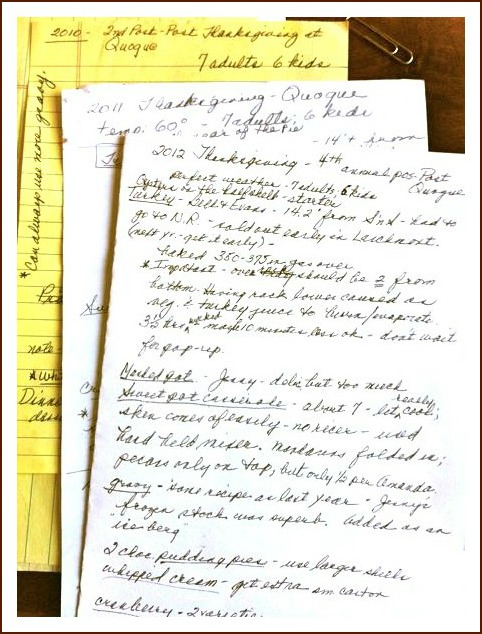 2010 - 2nd Post-Post Thanksgiving at
Quogue
7 adults 6 kids
*Can always use more gravy.
note -
Dinne
2011 Thanksgiving - Quogue
temp. 60° - 7 adults, 6 kids
Year of the Pie
2012 Thanksgiving - 4th
annual pos-Post
Quogue
perfect weather - 7 adults 6 kids
Oysters on the halfshell - starter
Turkey - Bell & Evans - 14.2 from S n S - had to
go to N.R. - sold out early in Larchmont.
(next yr. - get it early) -
baked 350-375 in gas oven
*Important - oven should be 2 from
bottom. Having rack lower caused
veg. & turkey juice to burn/evaporate.
3½ hrs, maybe 10 minutes less ok - don't wait
for pop-up.
Mashed pot. - Jenny - delic but too much
Sweet pot casserole - about 7 - let really cool;
skin comes off easily - no ricer - used
hand held mixer. folded in;
pecans only on top, but only ½ per Amanda.
gravy - same recipe as last year - Jenny's
frozen stock was superb. Added as an
"iceberg"
2 choc pudding pies - use larger shells
whipped cream - get extra sm carton
cranberry - 2 varieties